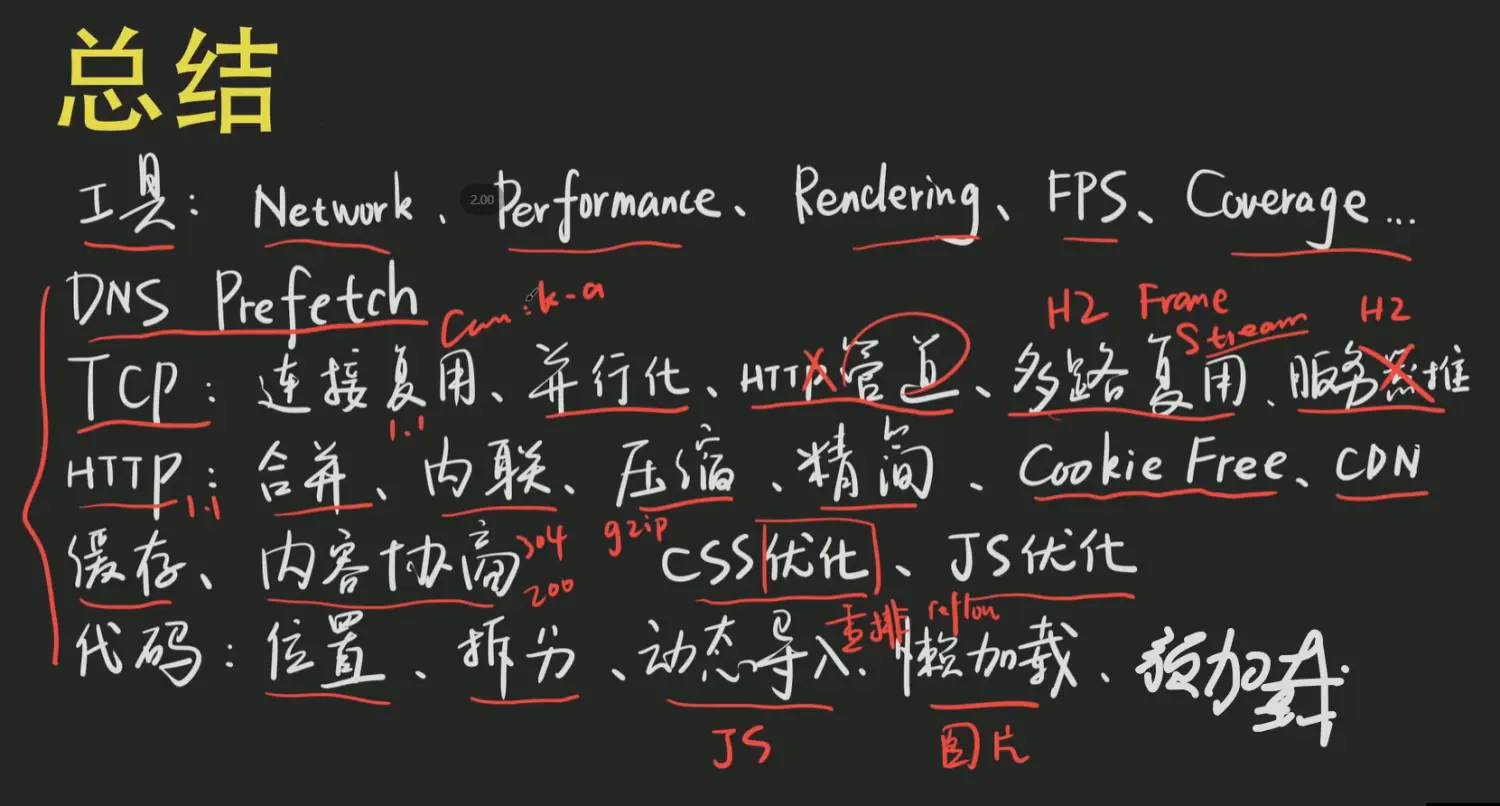 总结
2.00
工具: Network、Performance、Rendering、FPS、Coverage...
DNS Prefetch
Con: k-a
H2 Frame H2
Stream
TCP: 连接复用、并行化、HTTP管道、多路复用、服务器推
1.1
HTTP: 合并、内联、压缩、精简、Cookie Free、CDN
1.1
gzip
304
缓存、内容协商 CSS优化、JS优化
200
重排 reflow
代码: 位置、拆分、动态导入、懒加载、
JS 图片